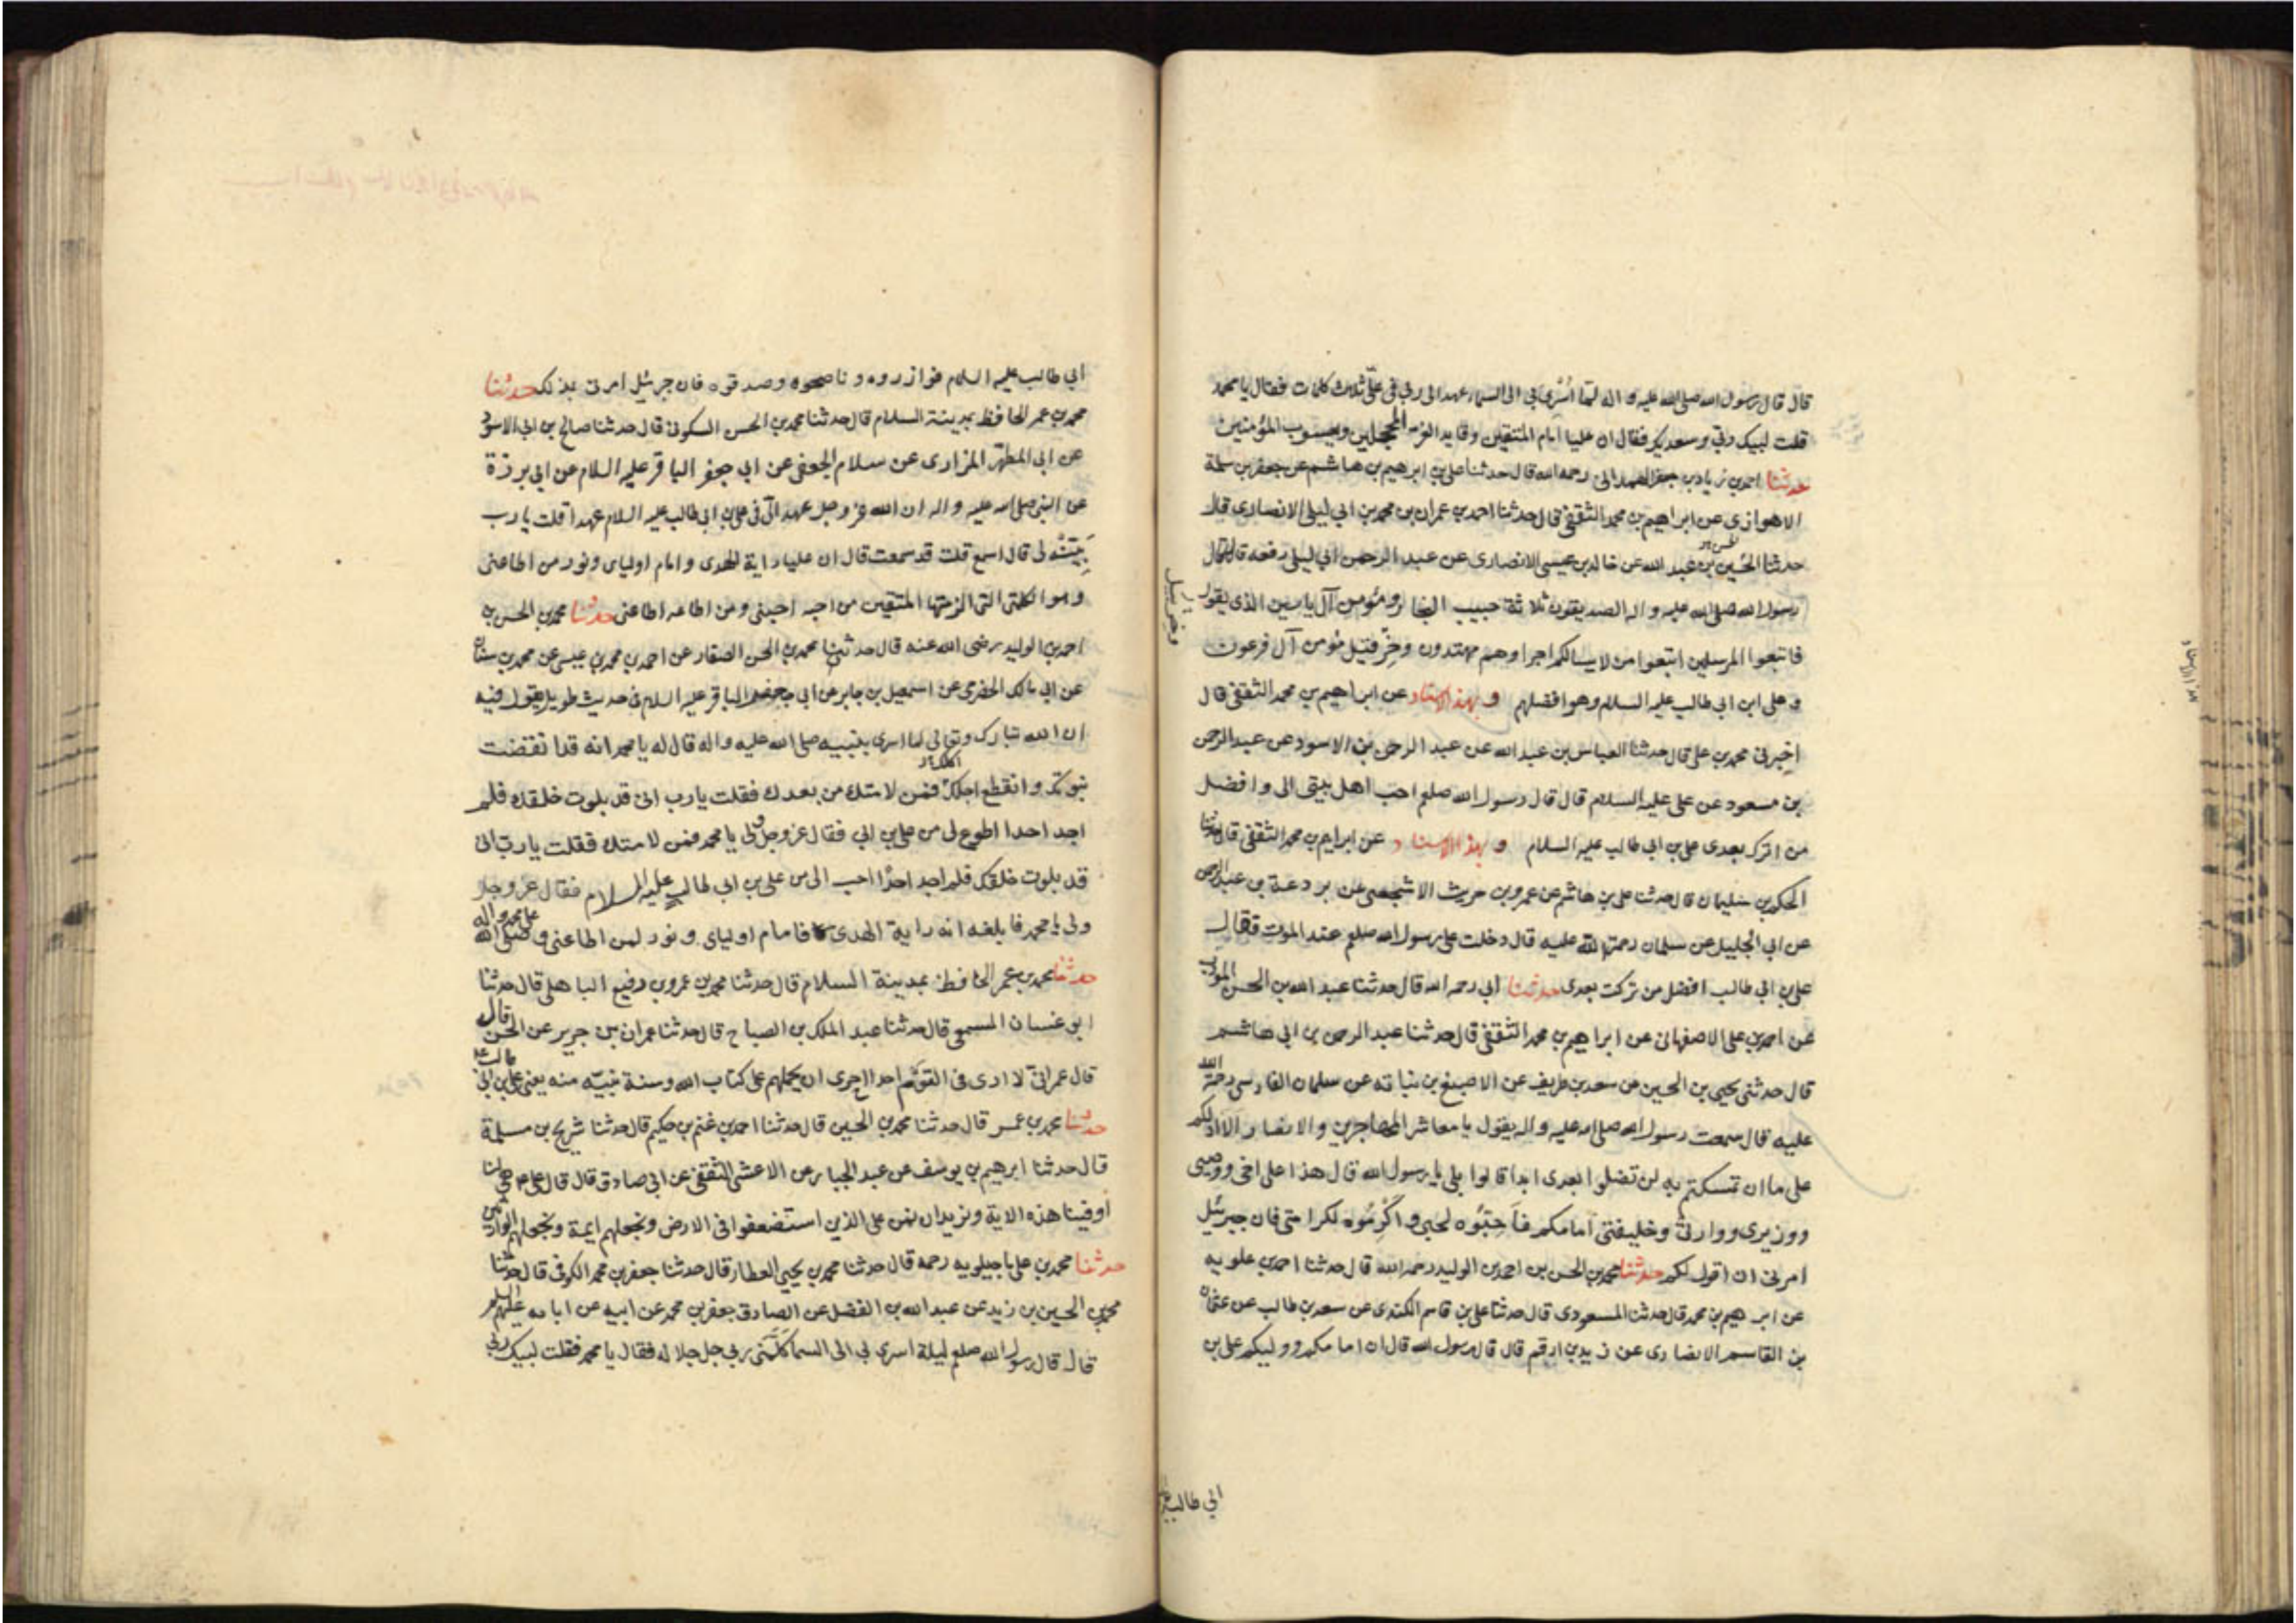 قال قال رسول الله صلى الله عليه و اله لمّا اُسْرِىَ بي الى السماء عهد الى ربي في علىّ ثلاث كلمات فقال يا محمد
قلت لبيك ربّي وسعديك فقال ان عليا امام المتقين وقايد الغر المحجلين ويعسوب المؤمنين
حدثنا احمد بن زياد بن جعفر الهمدانى رحمه الله قال حدثنا على بن ابرهيم بن هاشم عن جعفر بن سلمة
الاهوازى عن ابراهيم بن محمد الثقفى قال حدثنا احمد بن عمران بن محمد بن ابي ليلى الانصارى قال
حدثنا الحسين بن عبد الله عن خالد بن عيسى الانصارى عن عبد الرحمن ابي ليلى رفعه قال قال
رسول الله صلى الله عليه و اله الصديقون ثلاثة حبيب النجار ومؤمن آل ياسين الذى يقول
فاتبعوا المرسلين اتبعوا من لا يسالكم اجرا وهم مهتدون وخِرْقيل مؤمن آل فرعون
و على ابن ابى طالب عليه السلام وهو افضلهم و بهذا الاسناد عن ابراهيم بن محمد الثقفى قال
اخبرنى محمد بن على قال حدثنا العباس بن عبد الله عن عبد الرحمن بن الاسود عن عبد الرحمن
بن مسعود عن على عليه السلام قال قال رسول الله صلعم احب اهل بيتى الى وافضل
من اترك بعدى على بن ابى طالب عليه السلام و بهذا الاسناد عن ابراهيم بن محمد الثقفى قال حدثنا
الحكم بن سليمان قال حدثنا على بن هاشم عن عمرو بن حريث الاشجعى عن بردعة بن عبد الرحمن
عن ابى الجليل عن سلمان رحمة الله عليه قال دخلت على رسول الله صلعم عند الموت فقال
على بن ابى طالب افضل من تركت بعدى حدثنا ابى رحمه الله قال حدثنا عبد الله بن الحسن المؤدب
عن احمد بن على الاصفهانى عن ابراهيم بن محمد الثقفى قال حدثنا عبد الرحمن بن ابى هاشم
قال حدثنى يحيى بن الحسين عن سعد بن طريف عن الاصبغ بن نباته عن سلمان الفارسى رحمة الله
عليه قال سمعت رسول الله صلى الله عليه و اله يقول يا معاشر المهاجرين والانصار الا ادلكم
على ما ان تمسكتم به لن تضلوا بعدى ابدا قالوا بلى يا رسول الله قال هذا على اخى ووصيى
ووزيرى ووارثى وخليفتى امامكم فَاَحِبُّوه لحبى واكْرِمُوه لكرامتى فان جبرئيل
امرنى ان اقول لكم حدثنا محمد بن الحسن بن احمد بن الوليد رحمه الله قال حدثنا احمد بن علويه
عن ابرهيم بن محمد قال حدثنا المسعودى قال حدثنا على بن قاسم الكندى عن سعد بن طالب عن عثمان
بن القاسم الانصارى عن زيد بن ارقم قال قال رسول الله قال ان امامكم ووليكم على بن
ابي طالب
ابى طالب عليه السلام فوازروه وناصحوه وصدقوه فان جرئيل امرنى بذلك حدثنا
محمد بن عمر الحافظ بمدينة السلام قال حدثنا محمد بن الحسن السكونى قال حدثنا صالح بن ابى الاسود
عن ابى المطهّر المزارى عن سلام الجعفى عن ابى جعفر الباقر عليه السلام عن ابى برزة
عن النبى صلى الله عليه و اله ان الله عز و جل عهد الىّ فى على بن ابى طالب عليه السلام عهدا قلت يا رب
بَيِّنْهُ لى قال اسمع قلت قد سمعت قال ان عليا راية الهدى و امام اوليائى ونور من اطاعنى
وهو الكلمة التى الزمتها المتقين من احبه احبنى ومن اطاعه اطاعنى حدثنا محمد بن الحسن بن
احمد بن الوليد رضى الله عنه قال حدثنا محمد بن الحسن الصفار عن احمد بن محمد بن عيسى عن محمد بن سنان
عن ابى مالك الحضرمى عن اسمعيل بن جابر عن ابى جعفر الباقر عليه السلام فى حديث طويل يقول فيه
ان الله تبارك وتعالى لما اسرى بنبيه صلى الله عليه واله قال له يا محمد انه قد انقضت
نبوتك وانقطع اجلك فمن لامتك من بعدك فقلت يا رب انى قد بلوت خلقك فلم
اجد احدا اطوع لى من على بن ابى فقال عز وجل ولى يا محمد فمن لامتك فقلت يا رب انى
قد بلوت خلقك فلم اجد احدًا احب الى من على بن ابى طالب عليه السلام فقال عز وجل
ولى يا محمد فابلغه انه راية الهدى فامام اوليائى ونور لمن اطاعنى وصلى الله على محمد واله
حدثنا محمد بن عمر الحافظ بمدينة السلام قال حدثنا محمد بن عمرو بن رفيع الباهلى قال حدثنا
ابو غسان المسمعى قال حدثنا عبد الملك بن الصباح قال حدثنا عمران بن جرير عن الحسن قال
قال عمرانىّ لا ارى فى القوم احدا احرى ان يحملهم على كتاب الله وسنة نبيّه منه يعنى على بن ابى طالب
حدثنا محمد بن عمر قال حدثنا محمد بن الحسين قال حدثنا احمد بن غنم بن حكيم قال حدثنا شريح بن مسلمة
قال حدثنا ابرهيم بن يوسف عن عبد الجبار عن الاعشى الثقفى عن ابى صادق قال قال على ع هى لنا
اوفينا هذه الاية ونريد ان نمن على الذين استضعفوا فى الارض ونجعلهم ايمة ونجعلهم الوارثين
حدثنا محمد بن على ماجيلويه رحمه قال حدثنا محمد بن يحيى العطار قال حدثنا جعفر بن محمد الكوفى قال حدثنا
محمد بن الحسين بن زيد عن عبد الله بن الفضل عن الصادق جعفر بن محمد عن ابيه عن ابائه عليهم السلم
قال قال رسول الله صلعم ليلة اسرى بى الى السما كَلَّمَنى ربى جل جلاله فقال يا محمد فقلت لبيك ربى